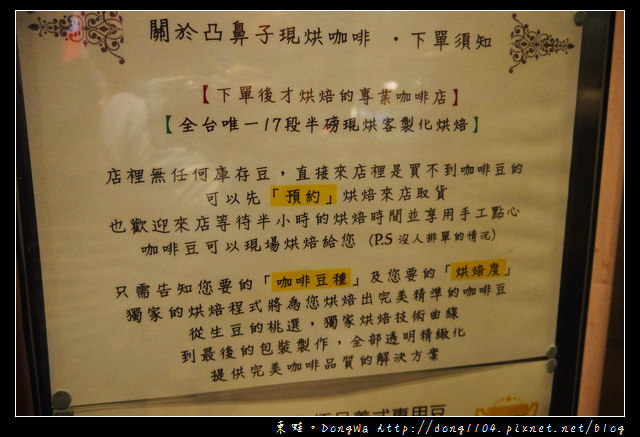 關於凸鼻子現烘咖啡 · 下單須知
【下單後才烘焙的專業咖啡店】
【全台唯一17段半磅現烘客製化烘焙】
店裡無任何庫存豆，直接來店裡是買不到咖啡豆的
可以先「預約」烘焙來店取貨
也歡迎來店等待半小時的烘焙時間並享用手工點心
咖啡豆可以現場烘焙給您 (P.S 沒人排單的情況)
只需告知您要的「咖啡豆種」及您要的「烘焙度」
獨家的烘焙程式將為您烘焙出完美精準的咖啡豆
從生豆的挑選，獨家烘焙技術曲線
到最後的包裝製作，全部透明精緻化
提供完美咖啡品質的解決方案
東蛙。DongWa http://dong1104.pixnet.net/blog